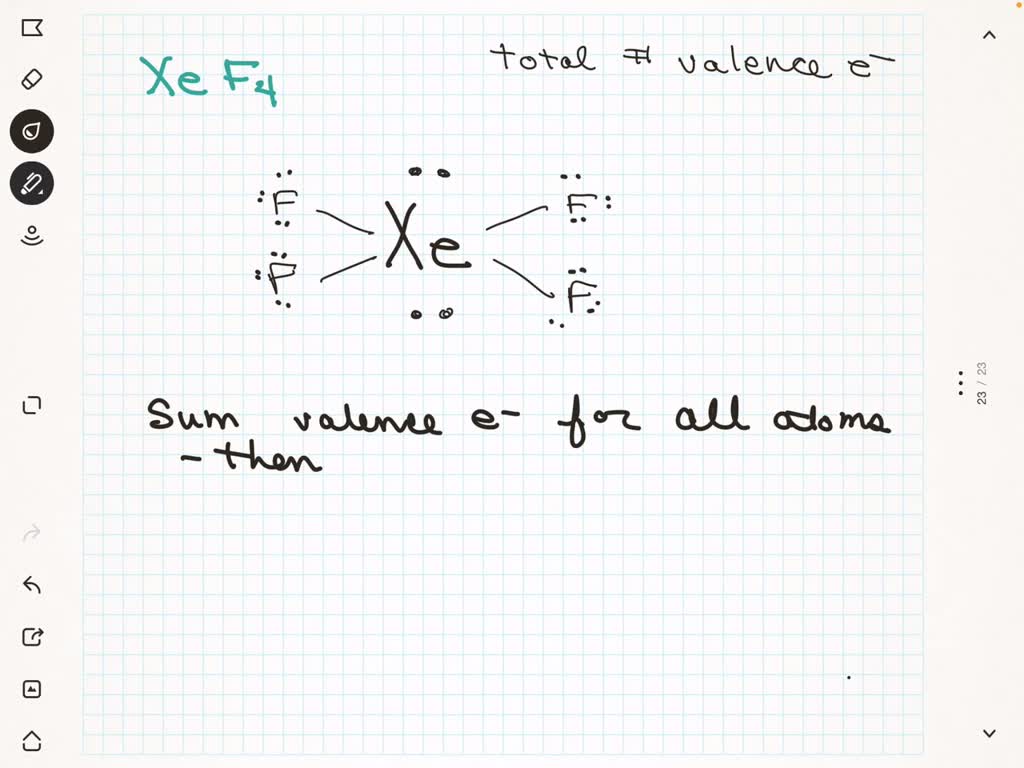 XeF4
total # valence e-
F Xe F
F F
Sum valence e- for all atoms
- then
23 / 23